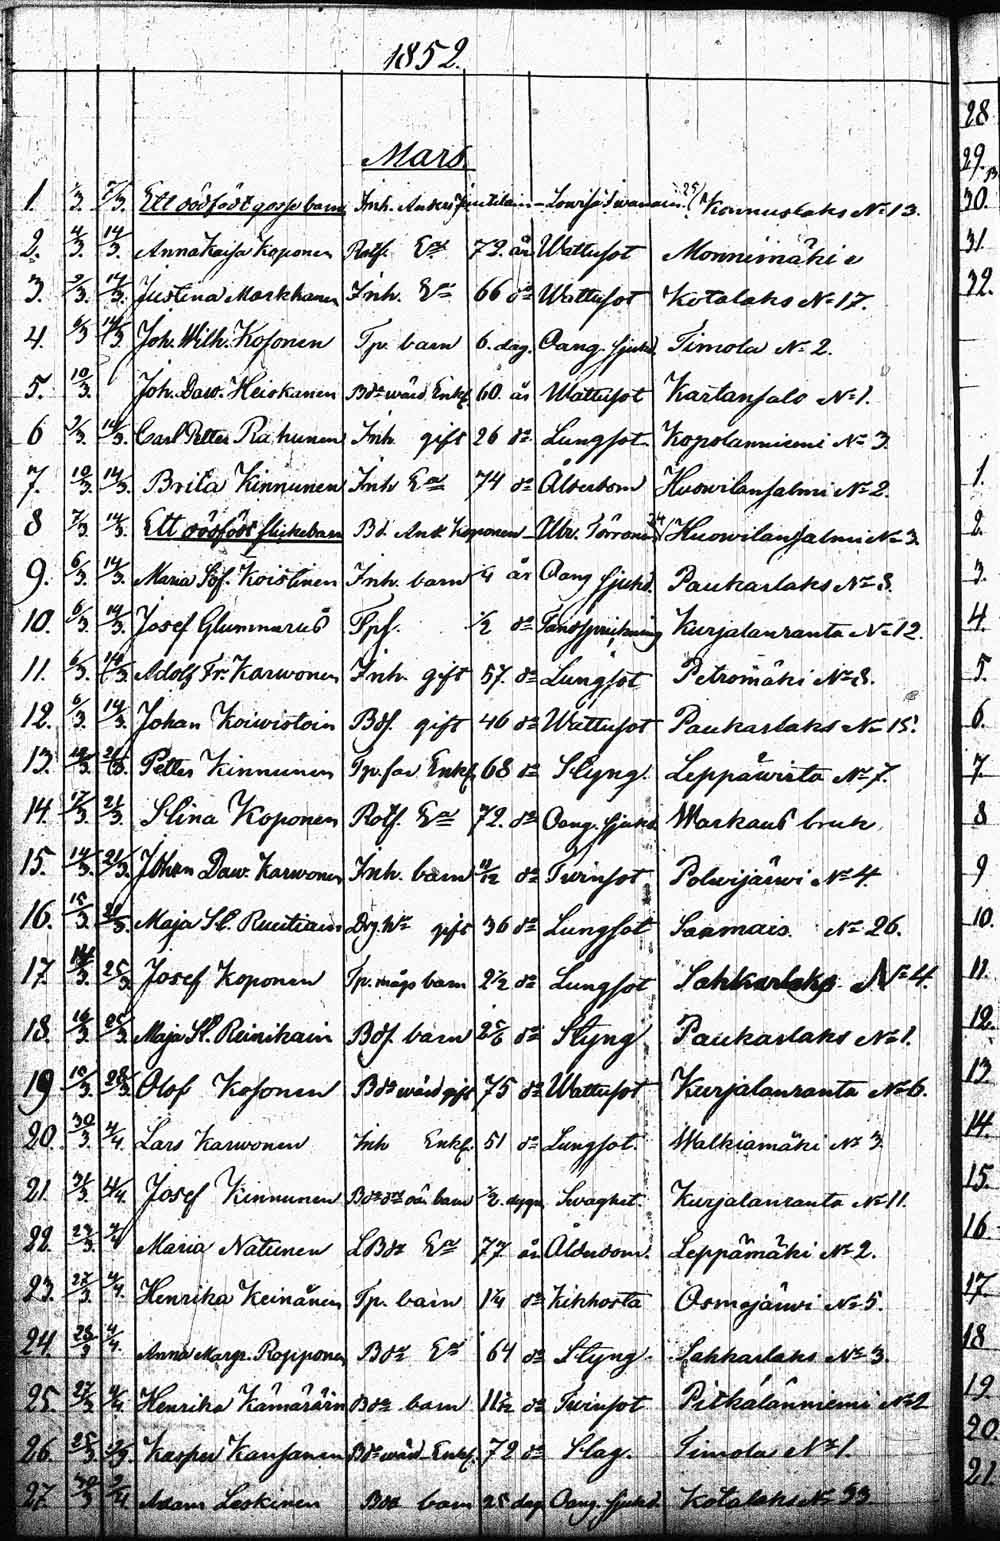 1852.
28
Mars.
29.
1. 1/3. 7/3. Ett dödfödt gosse barn Inh. Anders - Lovisa 25 Konnuslaks No 13.
30.
2. 4/3. 14/3. Anna Kaisa Koponen Rotf. Ea 72. år Wattusot Monnimäki
31.
3. 2/3. 14/3. Justina Markkanen Inh. Ea 66 do Wattusot Kotalaks No 17.
32.
4. 6/3 14/3. Joh. Wilh. Kosonen Tp. barn 6. dag. Oang. sjukd. Timola No 2.
5. 10/3. Joh. Daw. Heiskanen Bds wärd Enkl. 60. år Wattusot Kartansalo No 1.
6 3/3. 14/3. Carl Petter Pahunen Inh. gift 26 do Lungsot Kopolanniemi No 3.
7. 10/3. 14/3. Brita Kinnunen Inh Ea 74 do Ålderdom Huowilansalmi No 2.
1.
8 7/3. 14/3. Ett dödfödt flickebarn Bd. And. Koponen - Ulr. Törrönen 24 Huowilansalmi No 3.
2.
9. 6/3. 14/3. Maria Sof. Koistinen Inh. barn 4 år Oang sjukd. Paukarlaks No 8.
3.
10. 6/3. 14/3. Josef Glummerus Tpf. 1/2 do Tandsprickning Kurjalanranta No 12.
4.
11. 6/3. 14/3. Adolf Fr. Karwonen Inh. gift 57. do Lungsot Petromäki No 8.
5.
12. 6/3. 14/3. Johan Koiwistoin Bdf. gift 46 do Wattusot Paukarlaks No 15.
6.
13. 21/3. Petter Kinnunen Tp. far Enkl. 68 do Styng. Leppäwirta No 7.
7.
14. 17/3. 21/3. Stina Koponen Rotf. Ea 72. do Oang. sjukd. Warkaus bruk
8
15. 14/3. 21/3. Johan Daw. Karwonen Inh. barn 11/12 do Twinsot Polwijärwi No 4.
9
16. 15/3. 21/3. Maja St. gift 36 do Lungsot Saamais. No 26.
10.
17. 25/3. Josef Koponen Tp. mågs barn 2 1/2 do Lungsot Sahkarlaks No 4.
11.
18. 16/3. 25/3. Maja St. Reinikain Bdf. barn 2 5/6 do Styng Paukarlaks No 1.
12.
19 10/3. 28/3. Olof Kosonen Bds wärd gift 75 do Wattusot Kurjalanranta No 6.
13
20. 30/3. 4/4. Lars Karwonen Inh Enkl. 51 do Lungsot. Walkiamäki No 3.
14.
21. 31/3. 4/4. Josef Kinnunen barn 1/2. dygn Swaghet. Kurjalanranta No 11.
15.
22. 4/4 Maria Natunen LBds Ea 77 år Ålderdom. Leppämäki No 2.
16.
23. 27/3. 4/4. Henrika Keinänen Tp. barn 1 1/4 do Kikhosta Osmajärwi No 5.
17.
24. 28/3 4/4. Anna Margr. Ropponen Bds Ea 64 do Styng. Sahkarlaks No 3.
18
25. 27/3. 4/4. Henrika Kämäräin Bds barn 11/12 do Twinsot Pitkälänniemi No 2
19.
26. 25/3. Kasper Kansanen Bds wärd Enkl. 72 do Slag. Timola No 1.
20.
27. 30/3 Adam Leskinen Bds barn 25 dag Oang. sjukd. Kotalaks No 33.
21.